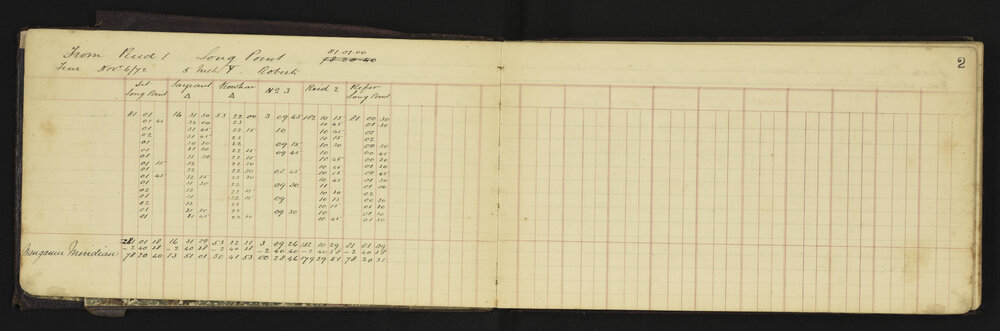 From Reid 1 Long Point 81.01.00
78 20 40
Fine Nov 6/72 5 Inch T. Roberts
2
Set Long Point Sargeant Δ Kowhai Δ No 3 Reid 2 Refer Long Point
81 01 16 31 30 53 22 00 3 09 45 182 10 15 81 00 30
01 45 32 00 23 10 45 01 30
01 31 45 22 15 10 10 45 01
02 31 45 22 10 15 02
01 30 30 22 09 15 10 30 00 30
01 31 30 22 15 09 45 11 00 45
01 31 30 22 15 10 45 00 30
01 15 32 22 30 10 45 01 30
01 32 22 30 08 45 10 15 00 45
01 45 32 15 23 30 10 45 01 30
01 31 30 22 09 30 11 01 00
02 32 23 15 10 30 02
01 31 22 15 09 10 15 01
02 32 22 10 15 01 30
01 31 30 23 09 30 11 01 30
01 31 45 22 30 10 45 00 30
81 01 18 16 31 39 53 22 31 3 09 26 182 10 29 81 01 09
-2 40 38 -2 40 38 -2 40 38 -2 40 40 -2 40 38 -2 40 38
Wanganui Meridian 78 20 40 13 51 01 50 41 53 00 28 46 179 29 51 78 20 31